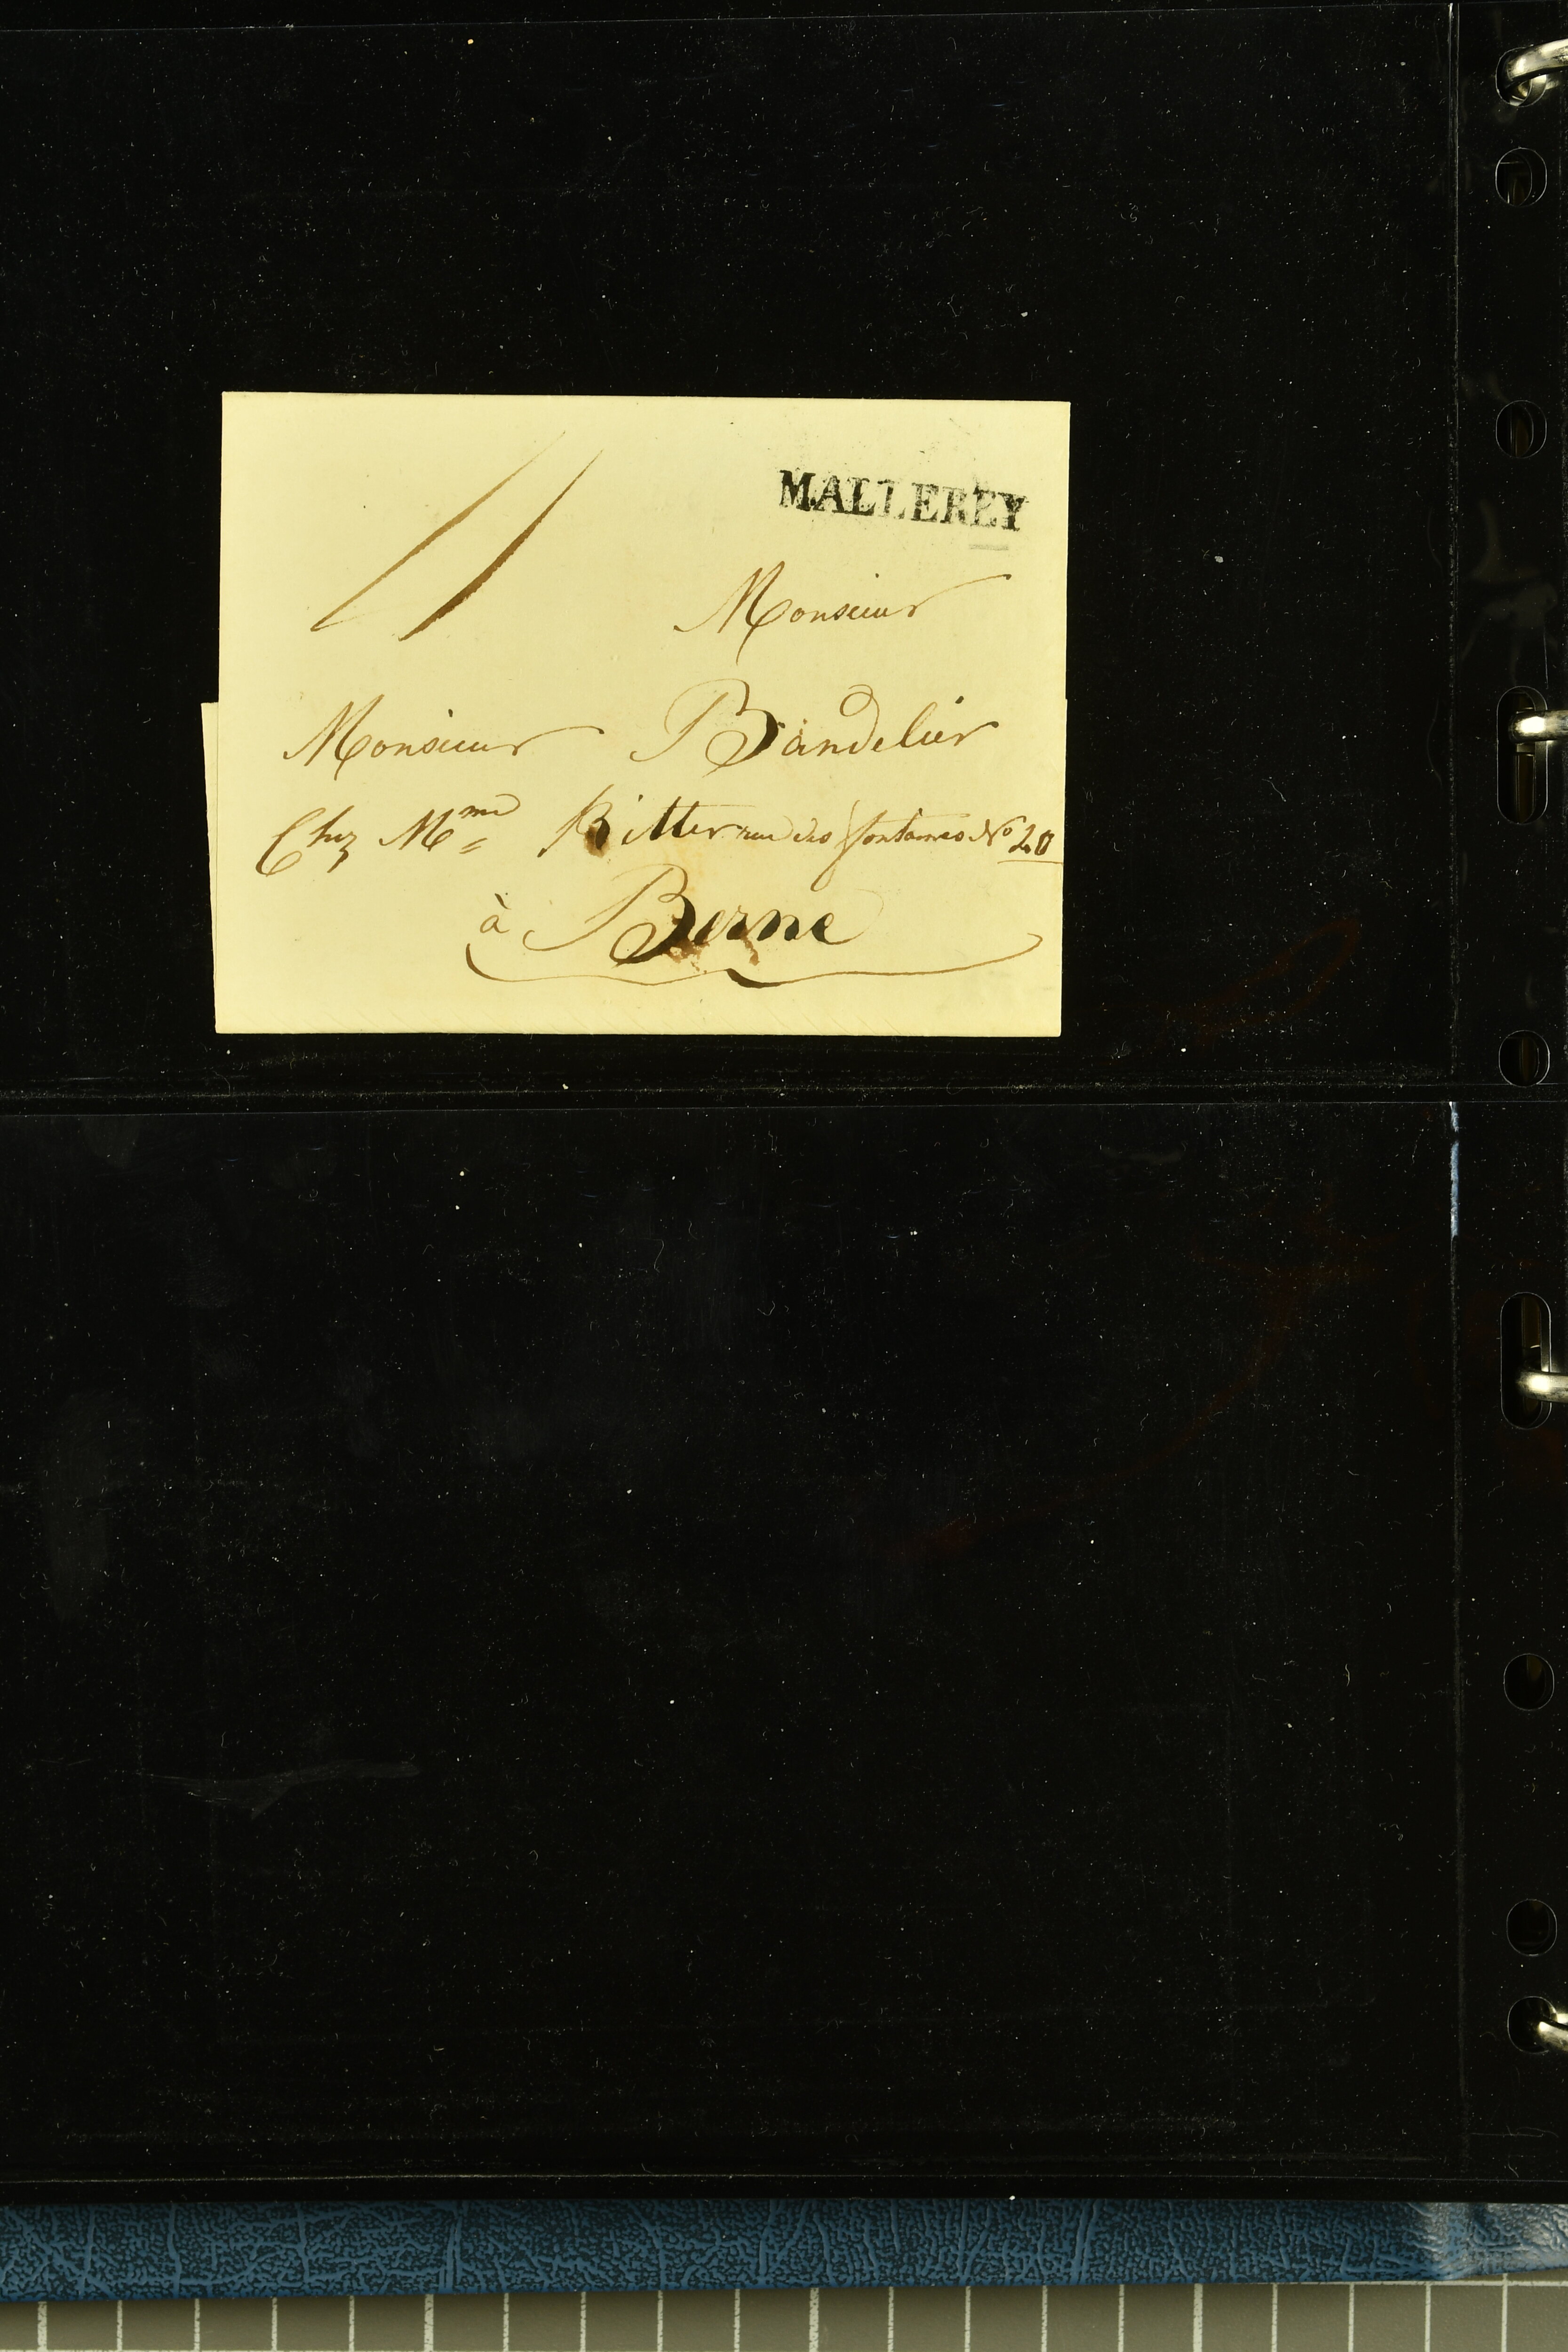 MALLEREY
Monsieur
Monsieur Bandelier
Chez Mme Ritter rue des fontaines No 20
à Berne